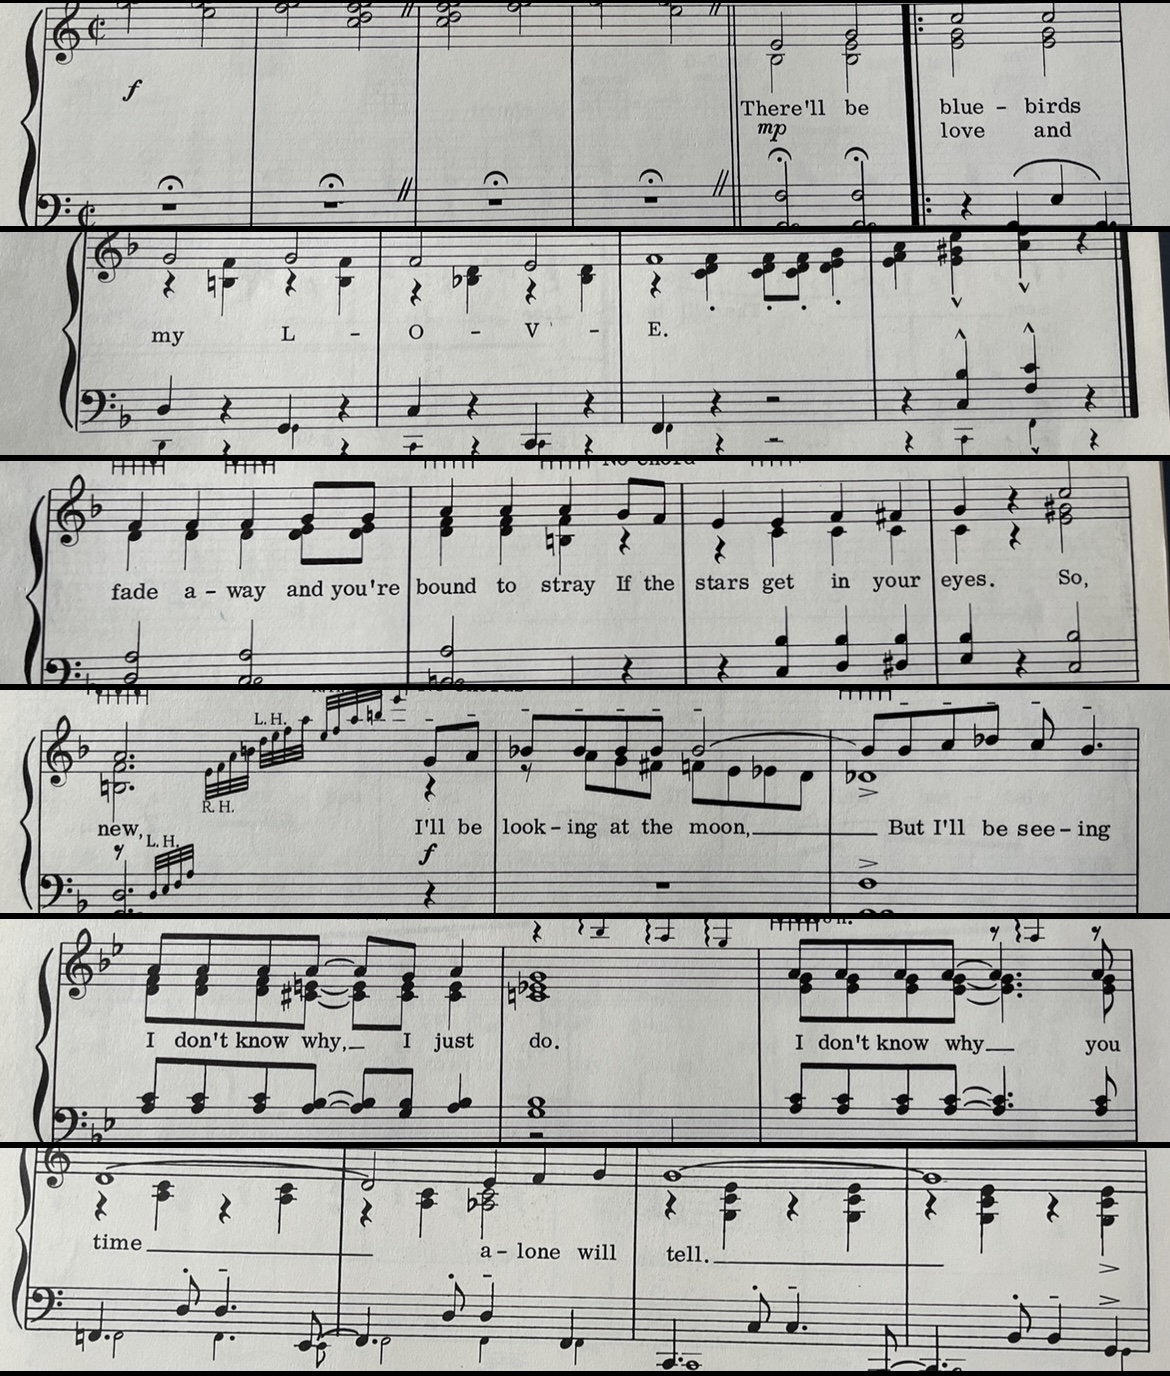 f
There'll be blue - birds
mp love and
my L - O - V - E.
No chord
fade a - way and you're bound to stray If the stars get in your eyes. So,
L.H.
R.H.
new, I'll be look - ing at the moon, But I'll be see - ing
L.H.
f
I don't know why, I just do. I don't know why you
time a - lone will tell.